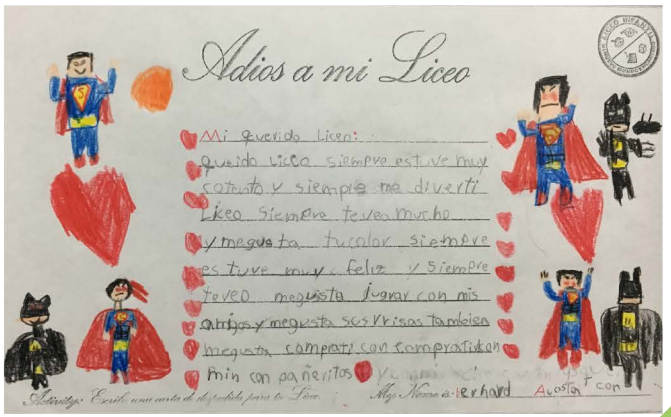 Adios a mi Liceo
LICEO INFANTIL
Mi querido Liceo:
querido liceo siempre estuve muy
contento y siempre me diverti
Liceo siempre te veo mucho
y megusta tucalor siempre
estuve muy feliz y siempre
teveo megusta jugrar con mis
amigos y megusta susvrisas tambien
megusta comprati con
min con pañeritos
Activity: Escribe una carta de despedida para tu Liceo. My Name is: erhard Acosta